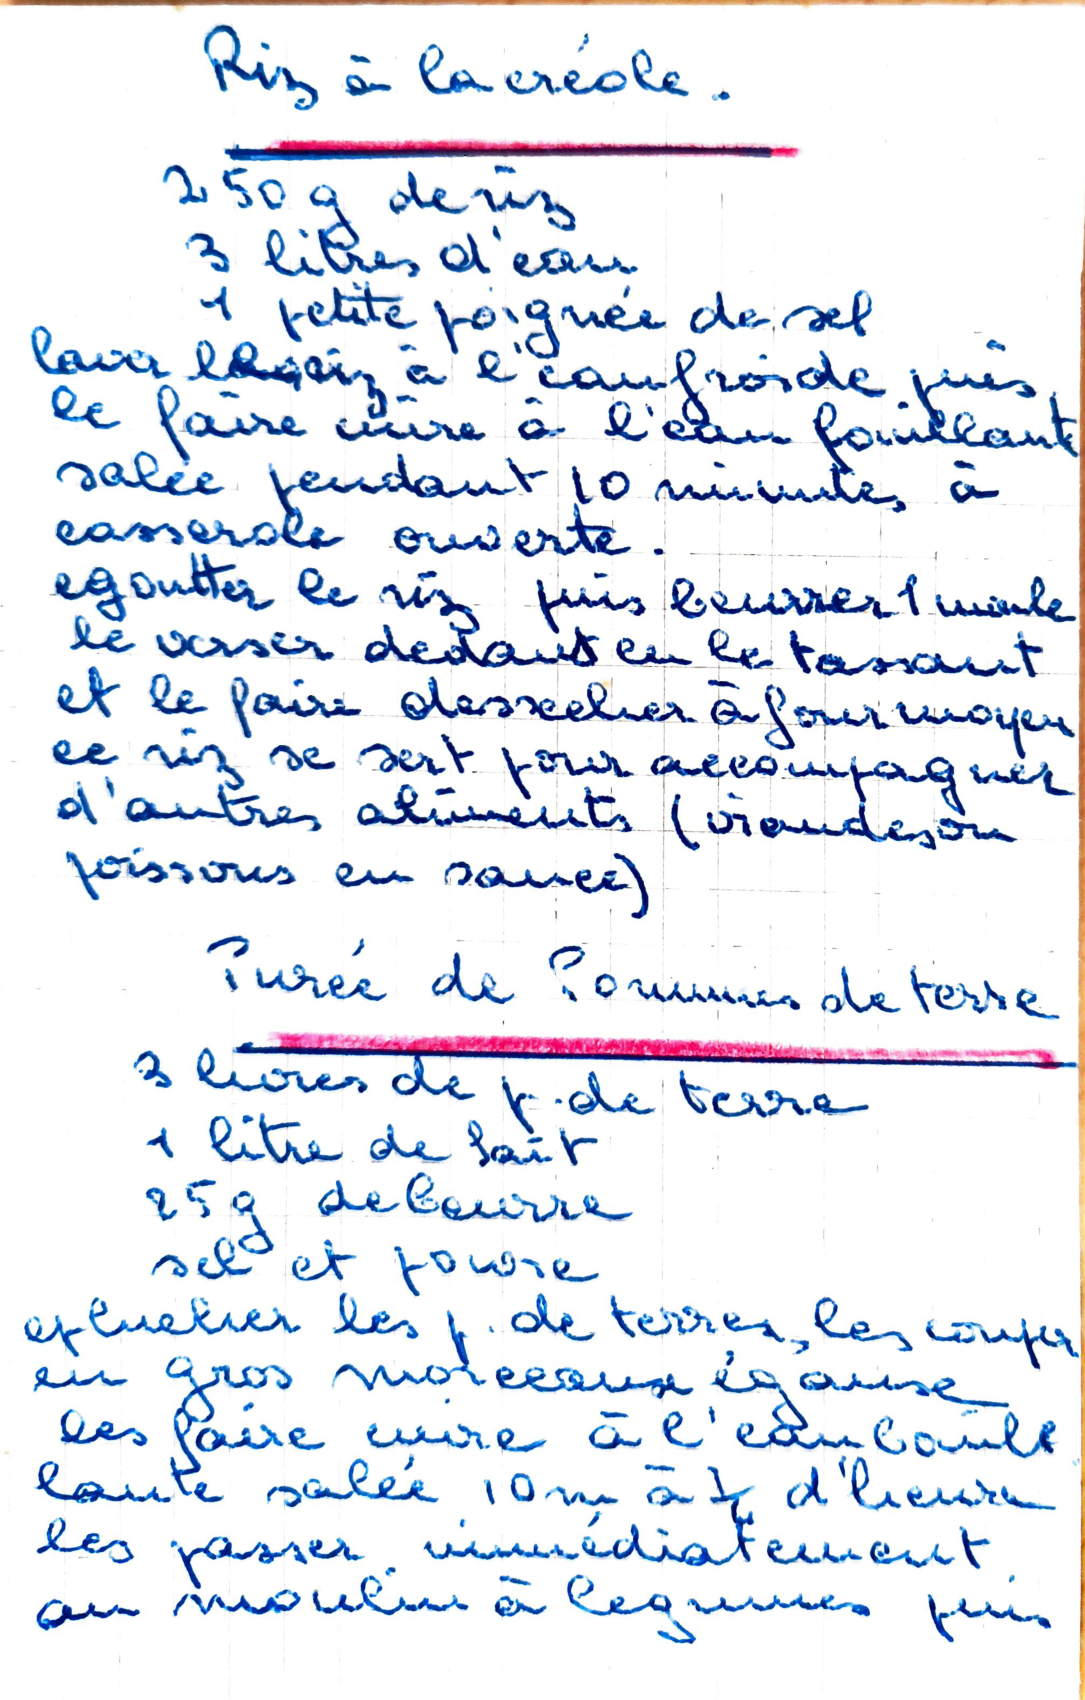 Riz à la créole.
250 g de riz
3 litres d'eau
1 petite poignée de sel
laver le riz à l'eau froide puis
le faire cuire à l'eau bouillante
salée pendant 10 minutes à
casserole ouverte.
egoutter le riz puis beurrer 1 moule
le verser dedans en le tassant
et le faire dessecher à four moyen
ce riz se sert pour accompagner
d'autres aliments (viandes ou
poissons en sauce)
Purée de Pommes de terre
3 livres de p. de terre
1 litre de lait
25g de beurre
sel et poivre
eplucher les p. de terres, les couper
en gros morceaux égaux
les faire cuire à l'eau bouil
lante salée 10 m à 1/4 d'heure
les passer immédiatement
au moulin à legumes puis